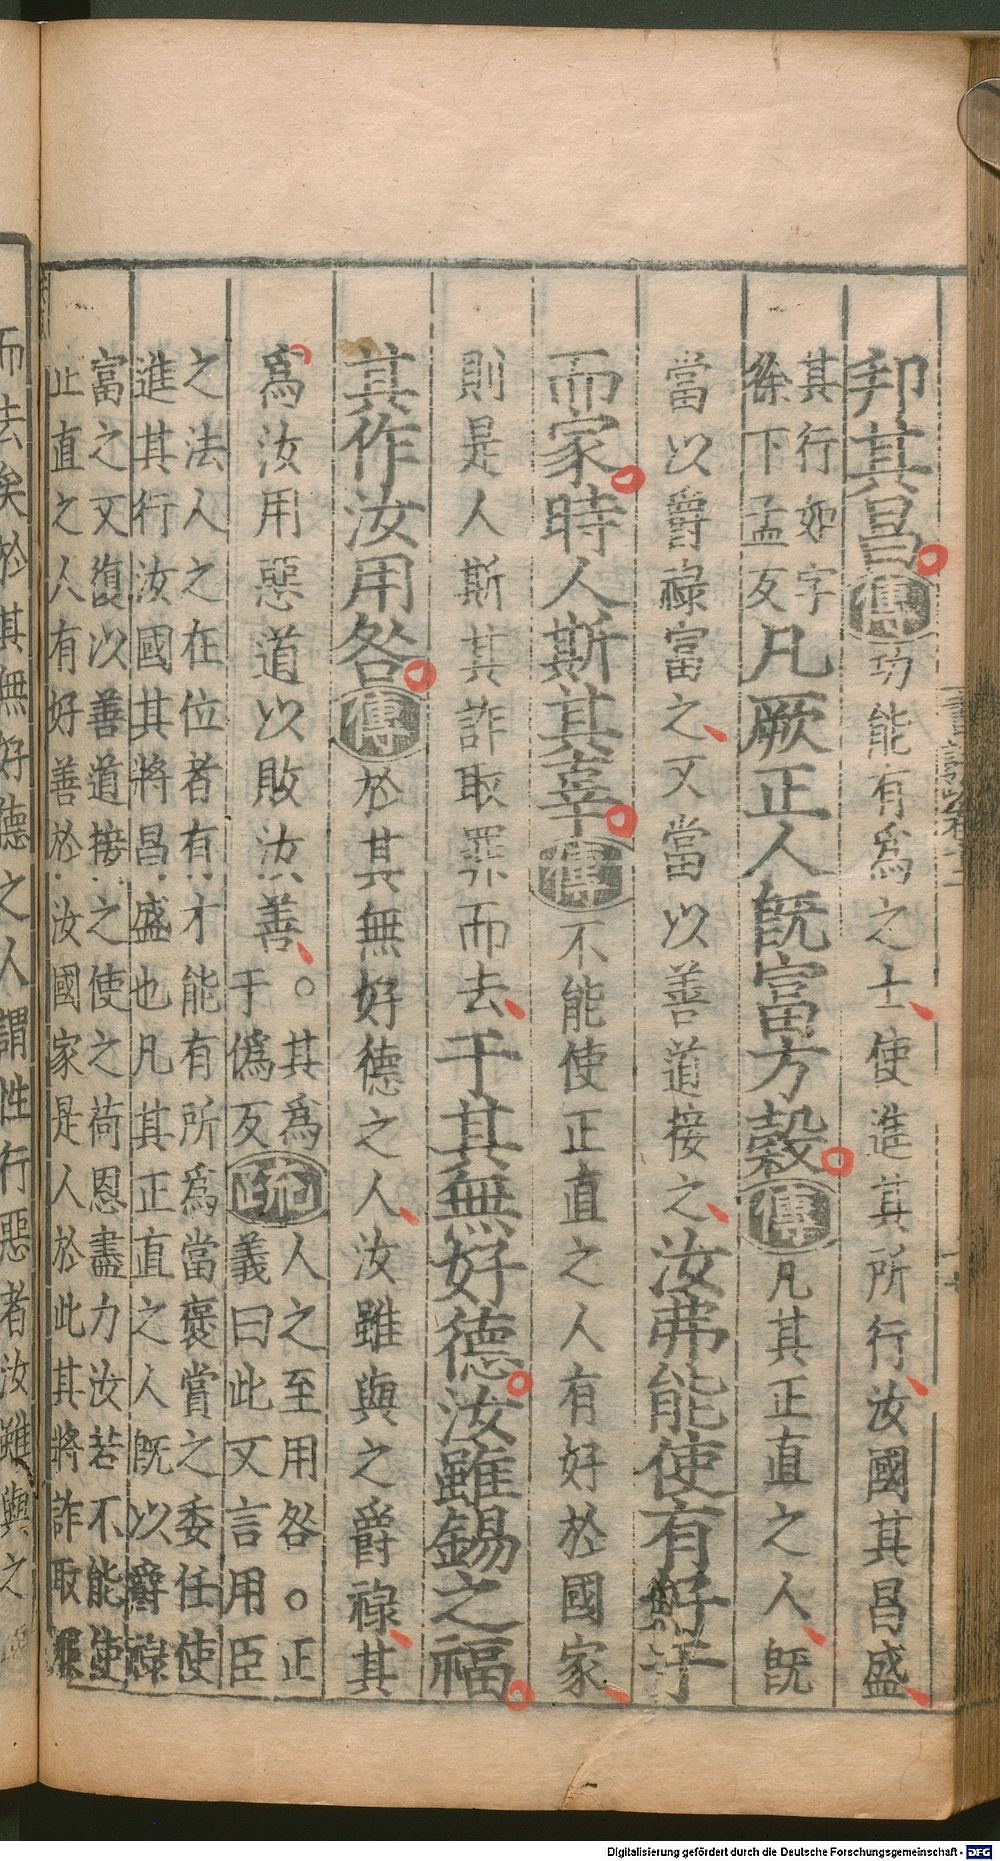 邦其昌傳功能有爲之士使進其所行汝國其昌盛
其行如字
徐下孟反
凡厥正人旣富方糓傳凡其正直之人旣
當以爵祿富之又當以善道接之汝弗能使有好于
而家時人斯其辜傳不能使正直之人有好於國家
則是人斯其詐取罪而去于其無好德汝雖錫之福
其作汝用咎傳於其無好德之人汝雖與之爵祿其
爲汝用惡道以敗汝善○
其爲
于僞反
疏
人之至用咎○正
義曰此又言用臣
之法人之在位者有才能有所爲當褒賞之委任使
進其行汝國其將昌盛也凡其正直之人旣以爵祿
富之又復以善道接之使之荷恩盡力汝若不能使
正直之人有好善於汝國家是人於此其將詐取罪
而去矣於其無好德之人謂性行惡者汝雖與之
Digitalisierung gefördert durch die Deutsche Forschungsgemeinschaft - DFG